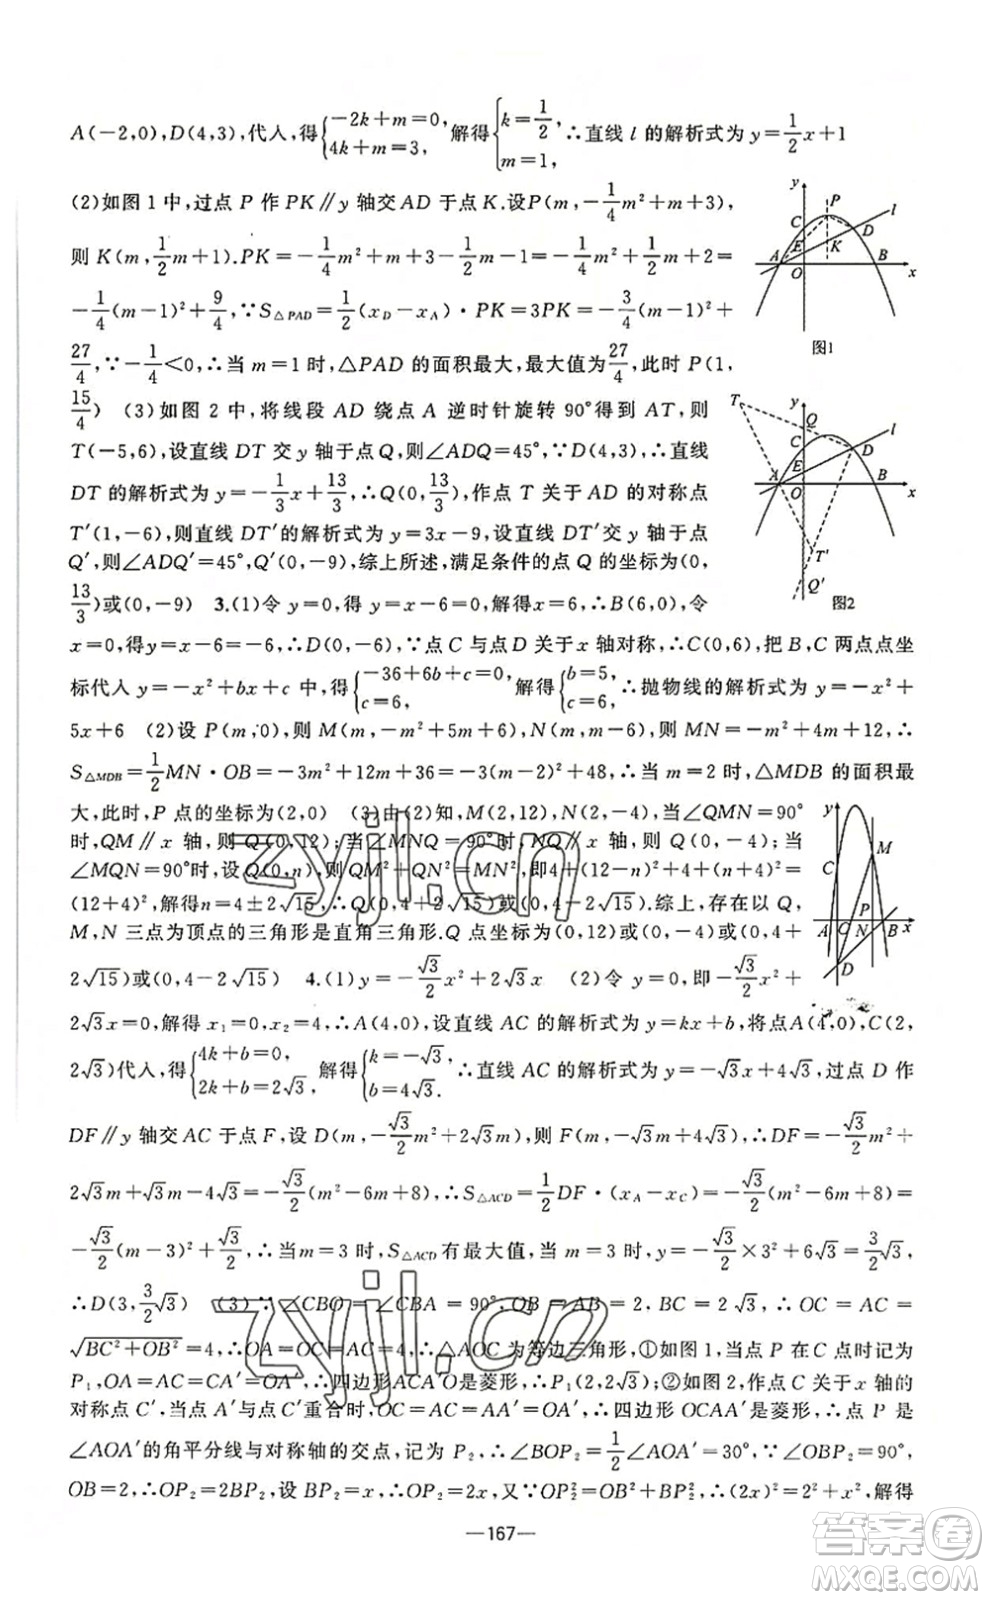 A(-2,0),D(4,3),代人,得{-2k+m=0, 4k+m=3, 解得{k=1/2, m=1, ∴直线 l 的解析式为 y=1/2x+1
(2)如图1中,过点 P 作 PK∥y 轴交 AD 于点 K.设P(m,-1/4m²+m+3),
则 K(m,1/2m+1).PK=-1/4m²+m+3-1/2m-1=-1/4m²+1/2m+2=
-1/4(m-1)²+9/4,∵S△PAD=1/2(xD-xA)·PK=3PK=-3/4(m-1)²+
27/4,∵-1/4<0,∴当 m=1 时,△PAD 的面积最大,最大值为27/4,此时 P(1,
15/4) (3)如图 2 中,将线段 AD 绕点 A 逆时针旋转 90°得到 AT,则
T(-5,6),设直线 DT 交 y 轴于点 Q,则∠ADQ=45°,∵D(4,3),∴直线
DT 的解析式为 y=-1/3x+13/3,∴Q(0,13/3),作点 T 关于 AD 的对称点
T′(1,-6),则直线 DT′的解析式为 y=3x-9,设直线 DT′交 y 轴于点
Q′,则∠ADQ′=45°,∴Q′(0,-9),综上所述,满足条件的点 Q 的坐标为(0,
13/3)或(0,-9) 3.(1)令 y=0,得 x-6=0,解得x=6,∴B(6,0),令
x=0,得y=x-6=-6,∴D(0,-6),∵点 C 与点D 关于 x 轴对称,∴C(0,6),把 B、C 两点点坐
标代人 y=-x²+bx+c 中,得{-36+6b+c=0, c=6, 解得{b=5, c=6, ∴抛物线的解析式为 y=-x²+
5x+6 (2)设 P(m,0),则 M(m,-m²+5m+6),N(m,m-6),则 MN=-m²+4m+12,∴
S△MDB=1/2MN·OB=-3m²+12m+36=-3(m-2)²+48,∴当 m=2 时,△MDB 的面积最
大,此时,P 点的坐标为(2,0) (3)由(2)知,M(2,12),N(2,-4),当∠QMN=90°
时,QM∥x 轴,则 Q(0,12);当∠MNQ=90°时,NQ∥x 轴,∴Q(0,-4);当
∠MQN=90°时,设Q(0,n),则QM²+QN²=MN²,即4+(12-n)²+4+(n+4)²=
(12+4)²,解得n=4±2√15,∴Q(0,4+2√15)或(0,4-2√15).综上,存在以Q,
M,N 三点为顶点的三角形是直角三角形.Q 点坐标为(0,12)或(0,-4)或(0,4+
2√15)或(0,4-2√15) 4.(1)y=-√3/2x²+2√3x (2)令 y=0,即-√3/2x²+
2√3x=0,解得 x₁=0,x₂=4,∴A(4,0),设直线 AC 的解析式为 y=kx+b,将点A(4,0),C(2,
2√3)代人,得{4k+b=0, 2k+b=2√3, 解得{k=-√3, b=4√3. ∴直线 AC 的解析式为 y=-√3x+4√3,过点 D 作
DF∥y 轴交 AC 于点 F,设 D(m,-√3/2m²+2√3m),则 F(m,-√3m+4√3),∴DF=-√3/2m²+
2√3m+√3m-4√3=-√3/2(m²-6m+8),∴S△ACD=1/2DF·(xA-xC)=-√3/2(m²-6m+8)=
-√3/2(m-3)²+√3/2,∴当 m=3 时,S△ACD有最大值,当 m=3 时,y=-√3/2×3²+6√3=3/2√3,
∴D(3,3/2√3) (3)∵∠CBO=∠CBA=90°,OB=AB=2,BC=2√3,∴OC=AC=
√BC²+OB²=4,∴OA=OC=AC=4,∴△AOC为等边三角形,①如图 1,当点 P 在 C 点时记为
P₁,OA=AC=CA′=OA′,∴四边形ACA′O是菱形,∴P₁(2,2√3);②如图 2,作点 C 关于x 轴的
对称点 C′,当点 A′与点 C′重合时,OC=AC=AA′=OA′,∴四边形 OCAA′是菱形,∴点 P 是
∠AOA′的角平分线与对称轴的交点,记为 P₂,∴∠BOP₂=1/2∠AOA′=30°,∵∠OBP₂=90°,
OB=2,∴OP₂=2BP₂,设 BP₂=x,∴OP₂=2x,又∵OP₂²=OB²+BP₂²,∴(2x)²=2²+x²,解得
y
P
C
D
l
E
K
A
O
B
x
图1
T
y
Q
C
D
l
E
A
O
B
x
T′
Q′
图2
y
M
C
P
A
O
N
B
x
D
zyjl.cn
zyjl.cn
—167—
答案卷
MXQE.COM